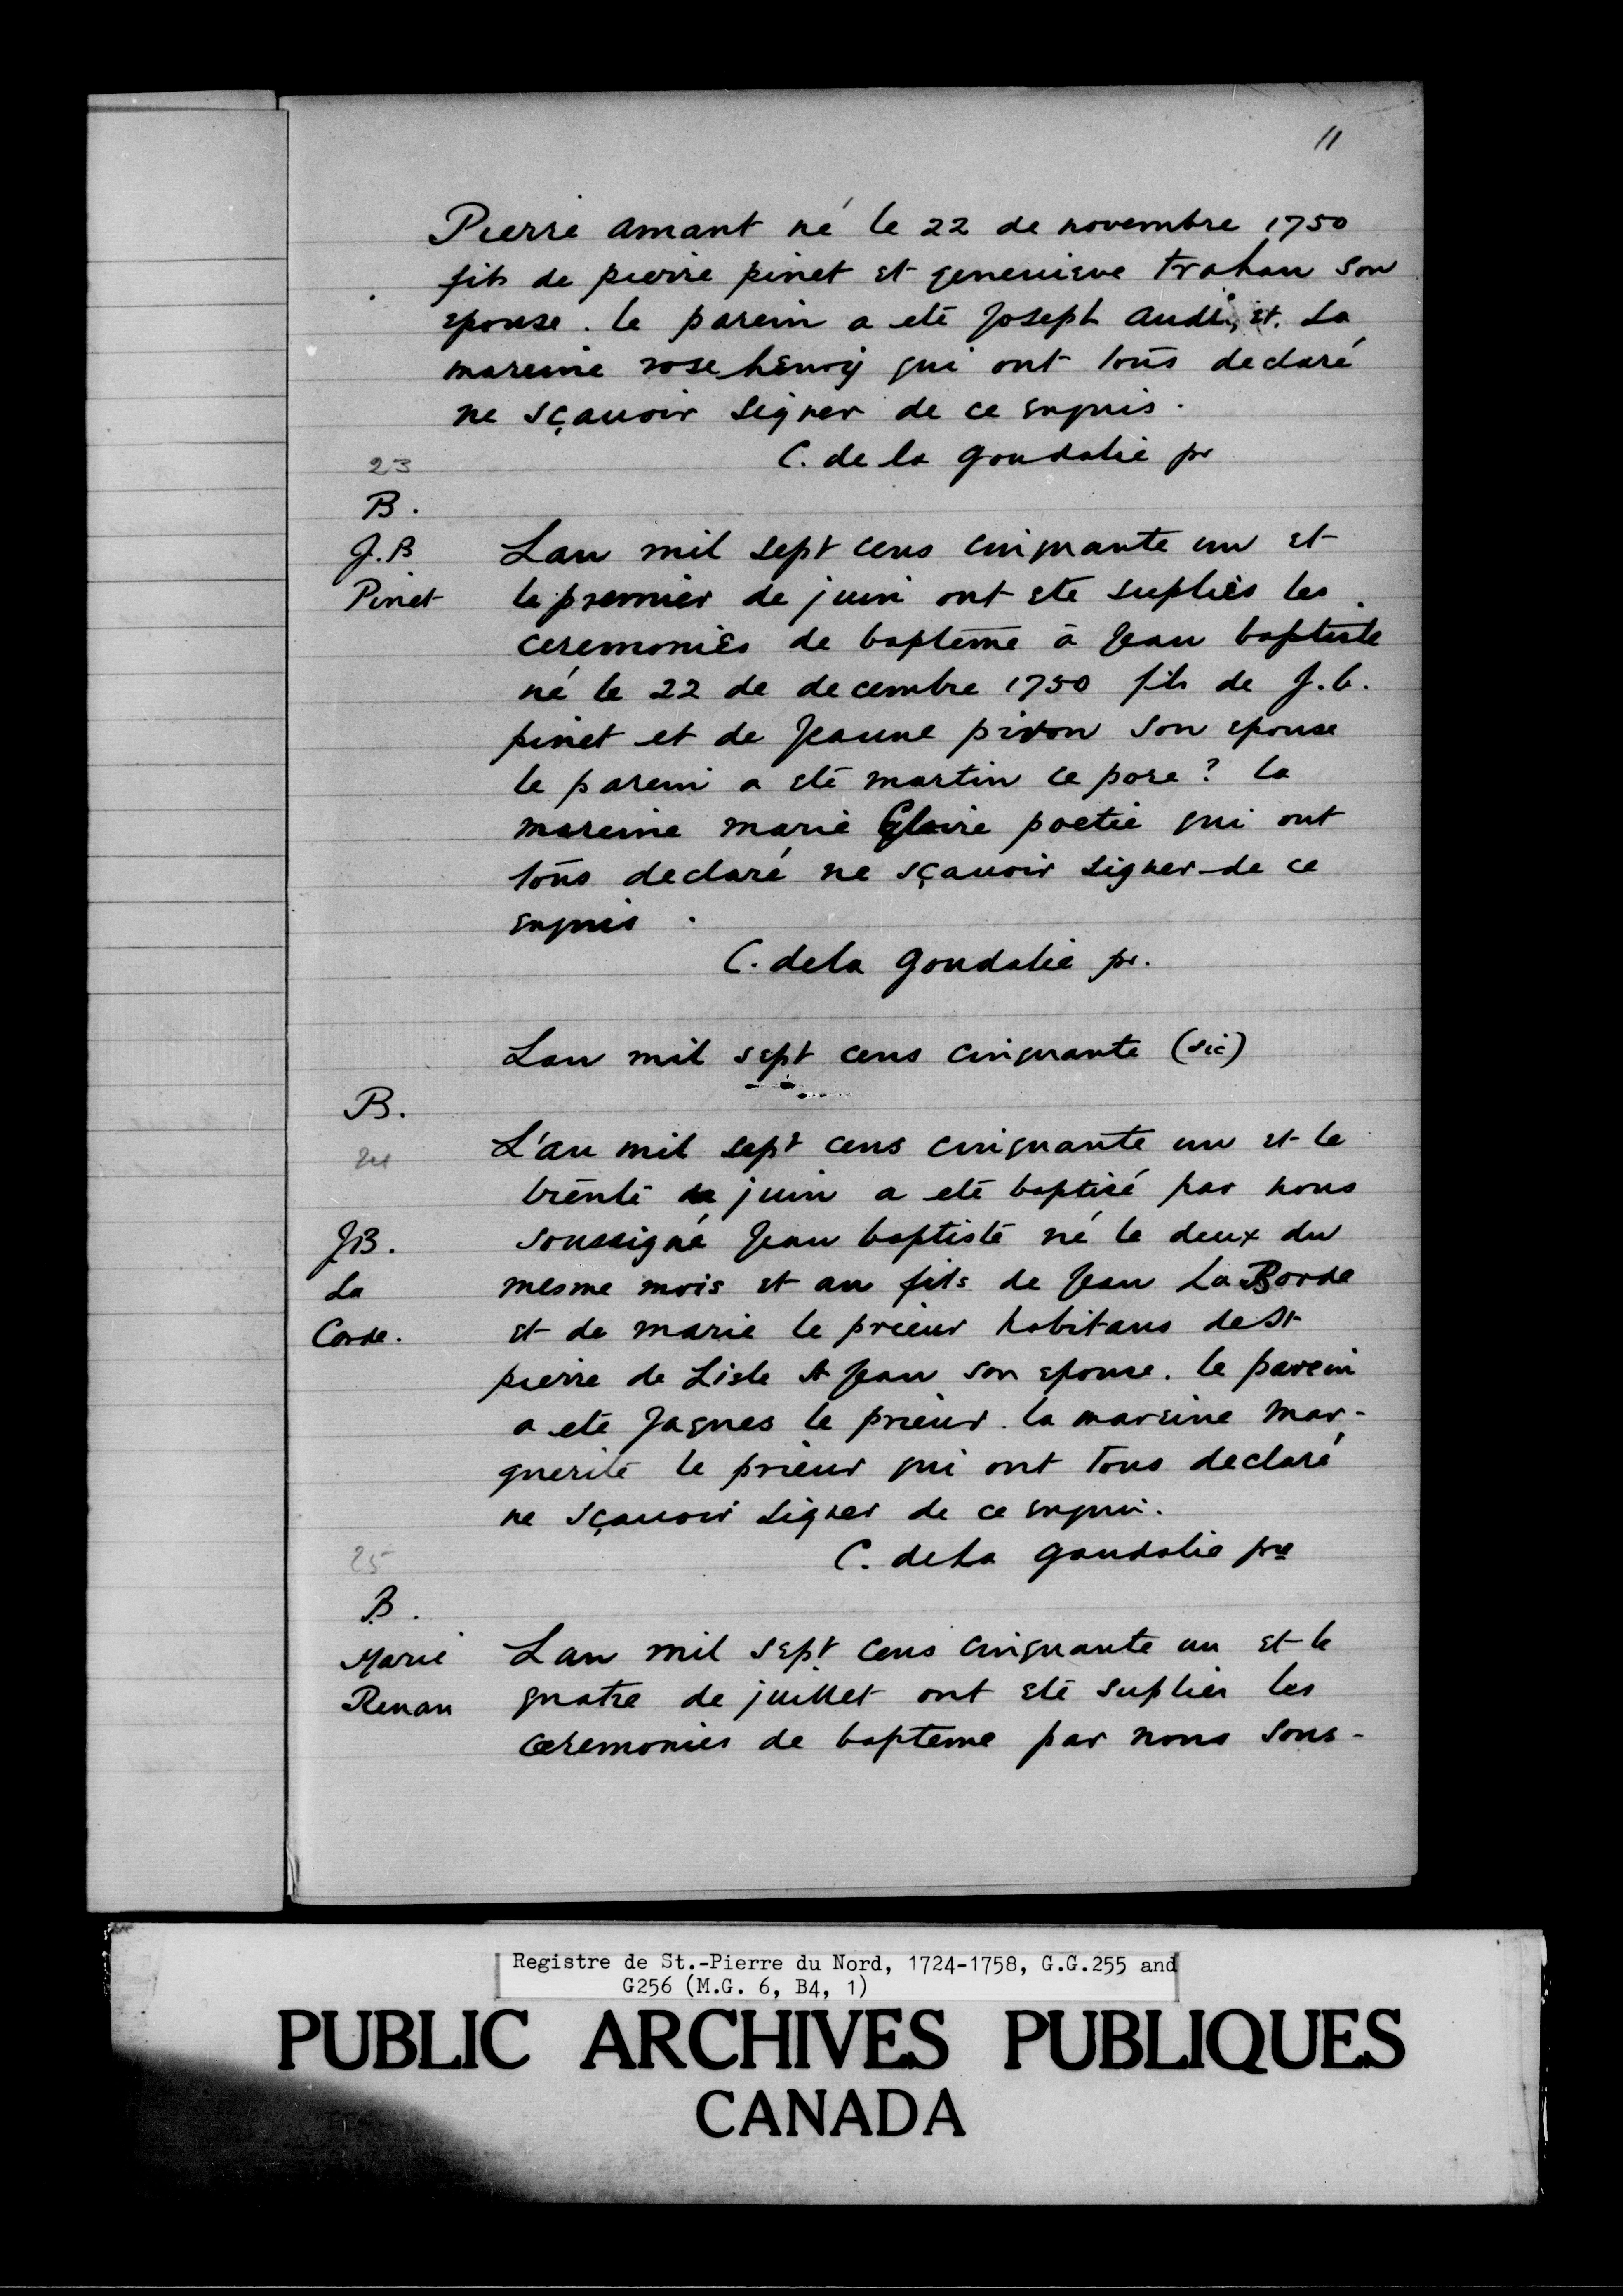 11
Pierre amant né le 22 de novembre 1750
fils de pierre pinet et genevieve trahan son
epouse. le parein a eté Joseph et la
mareine rose henrÿ qui ont tous declaré
ne sçauoir signer de ce enquis.
C. de la goudalie pr
23
B.
J.B
Pinet
Lan mil sept cens cinquante un et
le premier de juin ont ete supliés les
ceremonies de bapteme à Jean baptiste
né le 22 de decembre 1750 fils de J.b.
pinet et de Jeanne piron son epouse
le parein a eté martin le pore? la
mareine marie Glaire poetié qui ont
tous declaré ne sçauoir signer de ce
enquis.
C. dela goudalie pr.
Lan mil sept cens cinquante (sic)
B.
24
JB.
La
Corde.
L'an mil sept cens cinquante un et le
trente de juin a eté baptisé par nous
soussigné Jean baptiste né le deux du
mesme mois et an fils de Jean La Borde
et de marie le prieur habitans de St
pierre de Lisle St Jean son epouse. le parein
a eté Jaques le prieur. la mareine Mar-
guerite le prieur qui ont tous declaré
ne sçauoir signer de ce enquis.
C. de La goudalie pre
25
B.
Marie
Renan
Lan mil sept cens cinquante un et le
quatre de juillet ont eté supliés les
ceremonies de bapteme par nous sous-
Registre de St.-Pierre du Nord, 1724-1758, G.G.255 and
G256 (M.G. 6, B4, 1)
PUBLIC ARCHIVES PUBLIQUES
CANADA